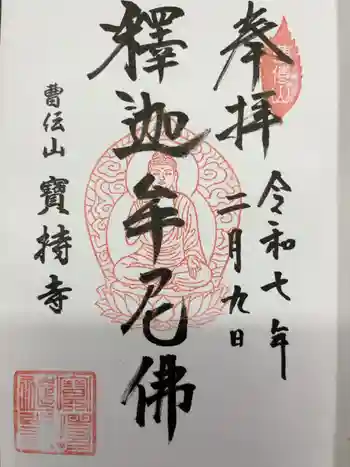 奉拝
令和七年
二月九日
釋迦牟尼佛
曹伝山
寶持寺